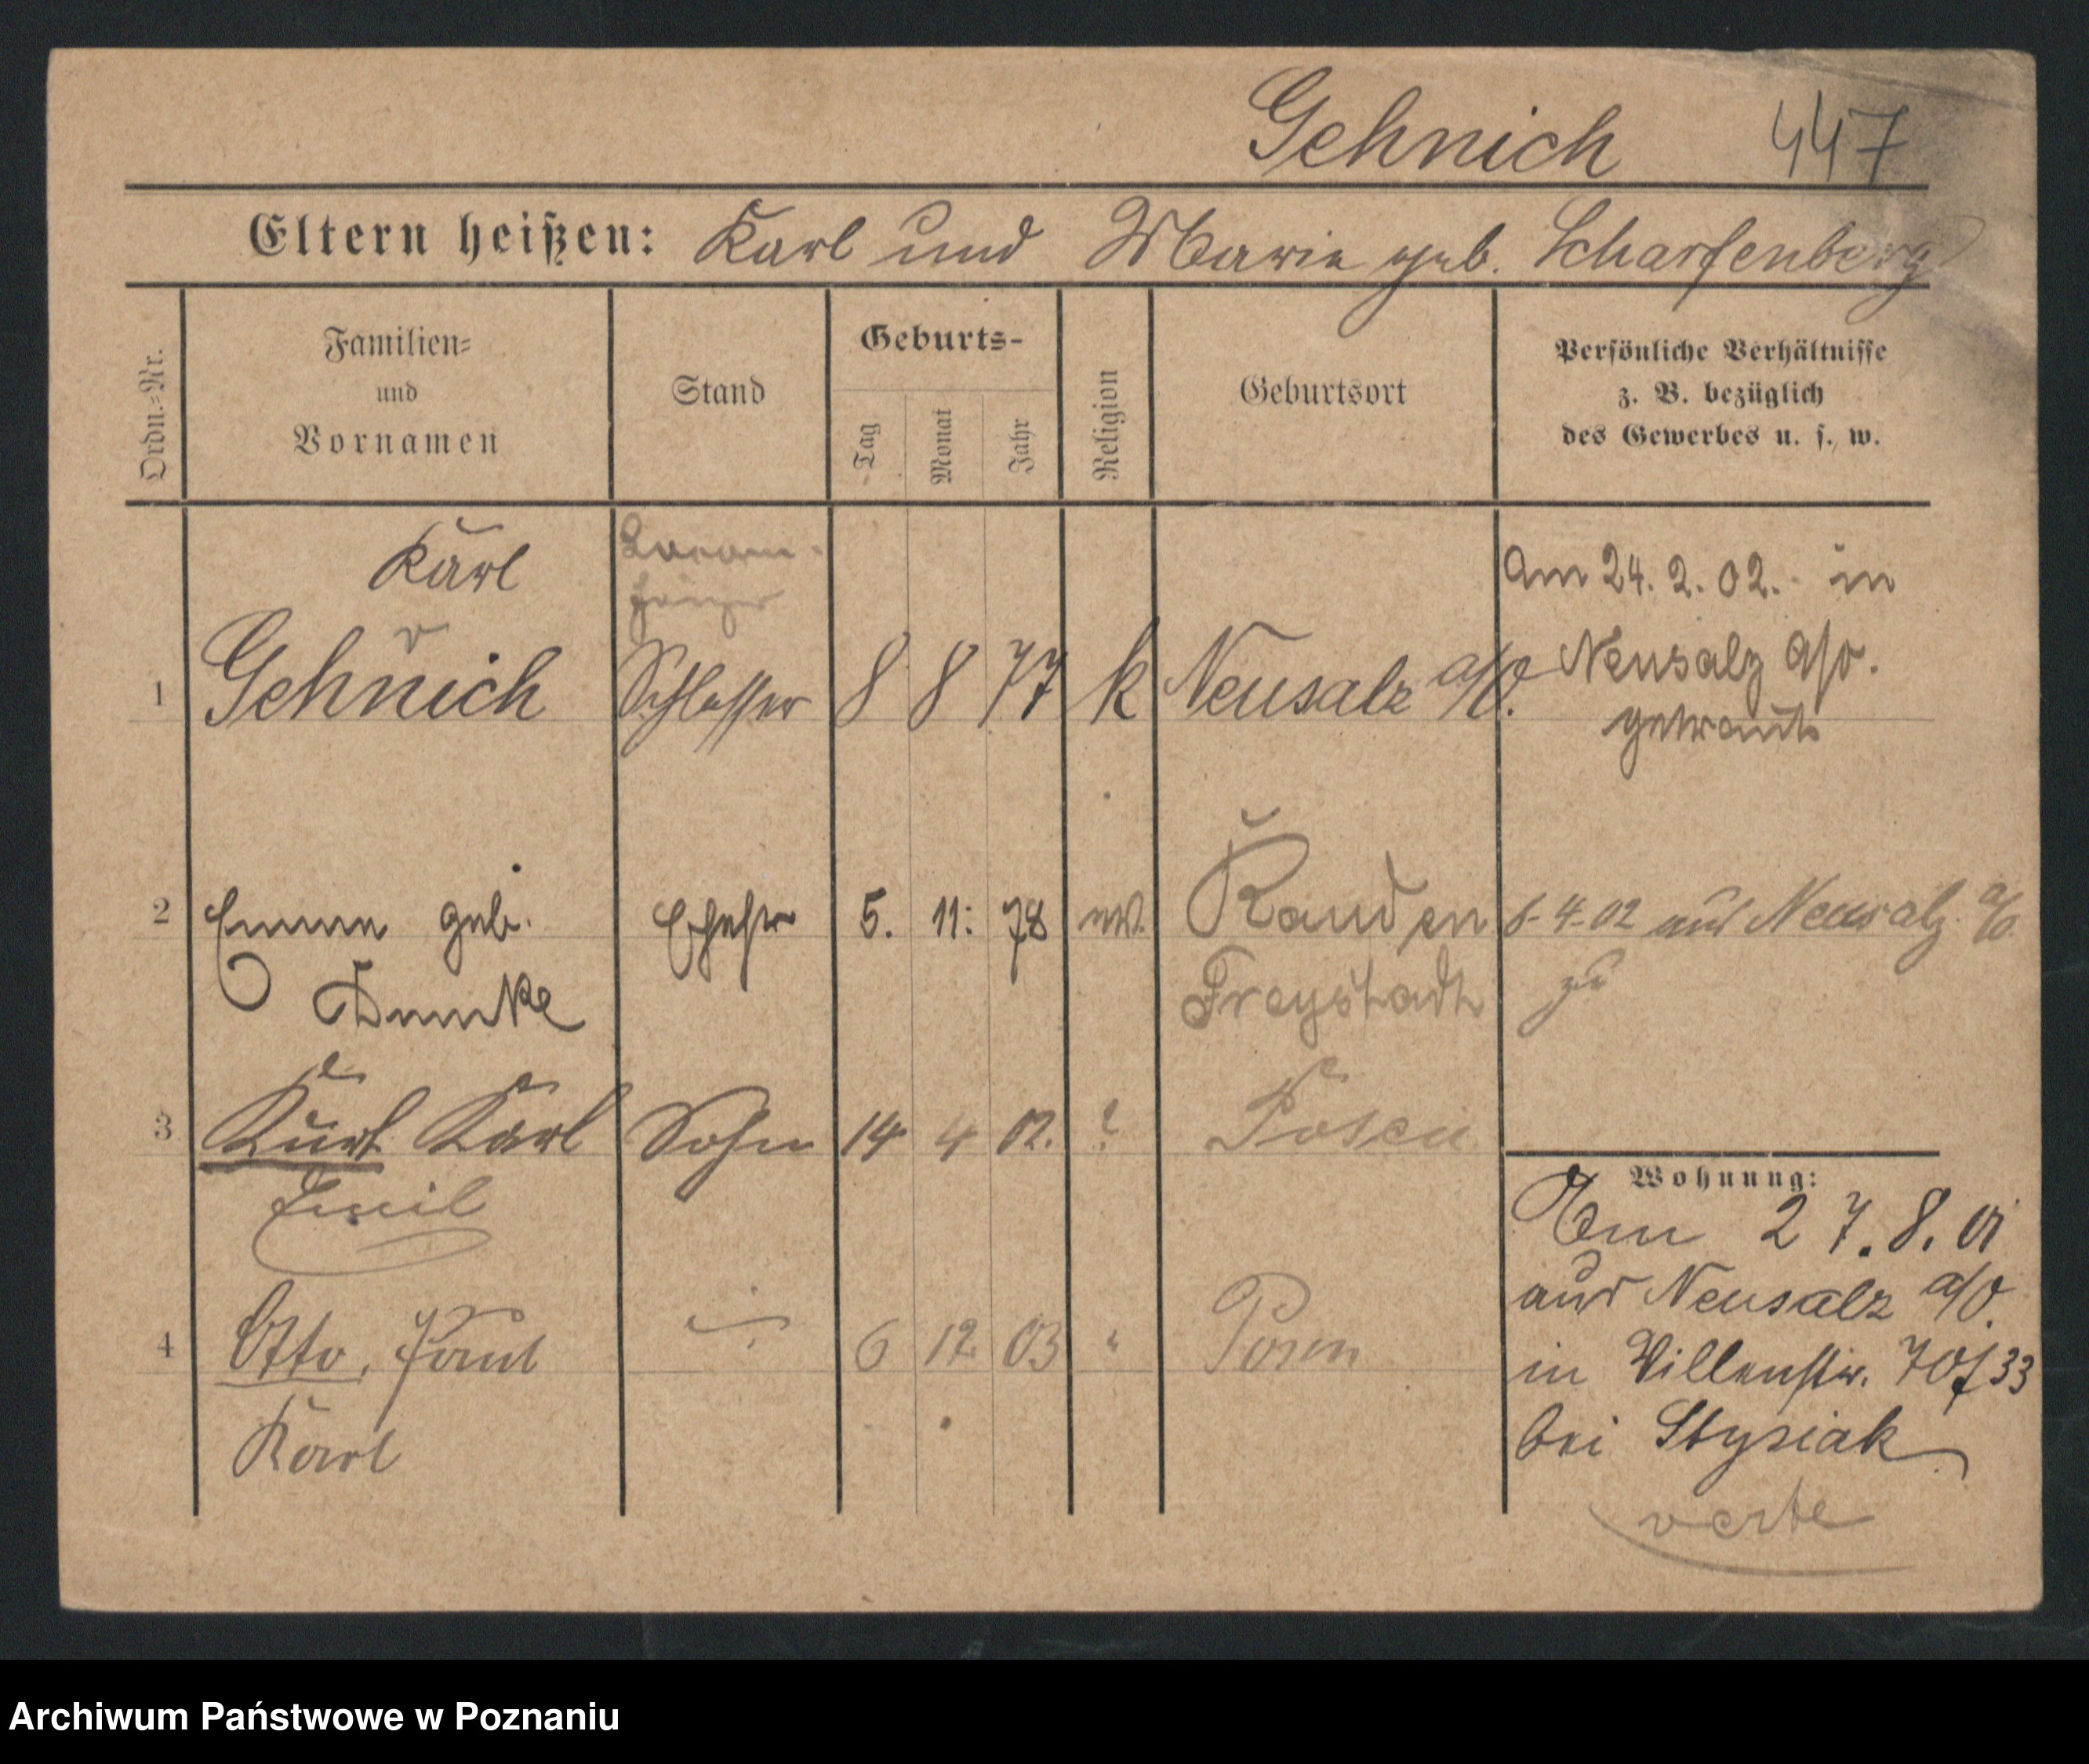 Gehnich 447
Eltern heißen: Karl und Marie geb. Scharfenberg
Ordn.=Nr.
Familien=
und
Vornamen
Stand
Geburts-
Tag
Monat
Jahr
Religion
Geburtsort
Persönliche Verhältnisse
z. B. bezüglich
des Gewerbes u. s. w.
Karl
1 Gehnich Schlosser 8 8 77 k Neusalz a/O.
am 24. 2. 02. in
Neusalz a/o.
getraut
2 Emma geb. Ehefr 5. 11. 78 ev. Rauden
Freystadt
4.02 aus Neusalz a/O.
zu
3 Kurt Karl Sohn 14 4 02. ? Posen
Emil
4 Otto, Paul 6 12 03 " Posen
Karl
Wohnung:
Am 27. 8. 01
aus Neusalz a/O.
in Villenstr. 33
bei Stysiak
verte
Archiwum Państwowe w Poznaniu